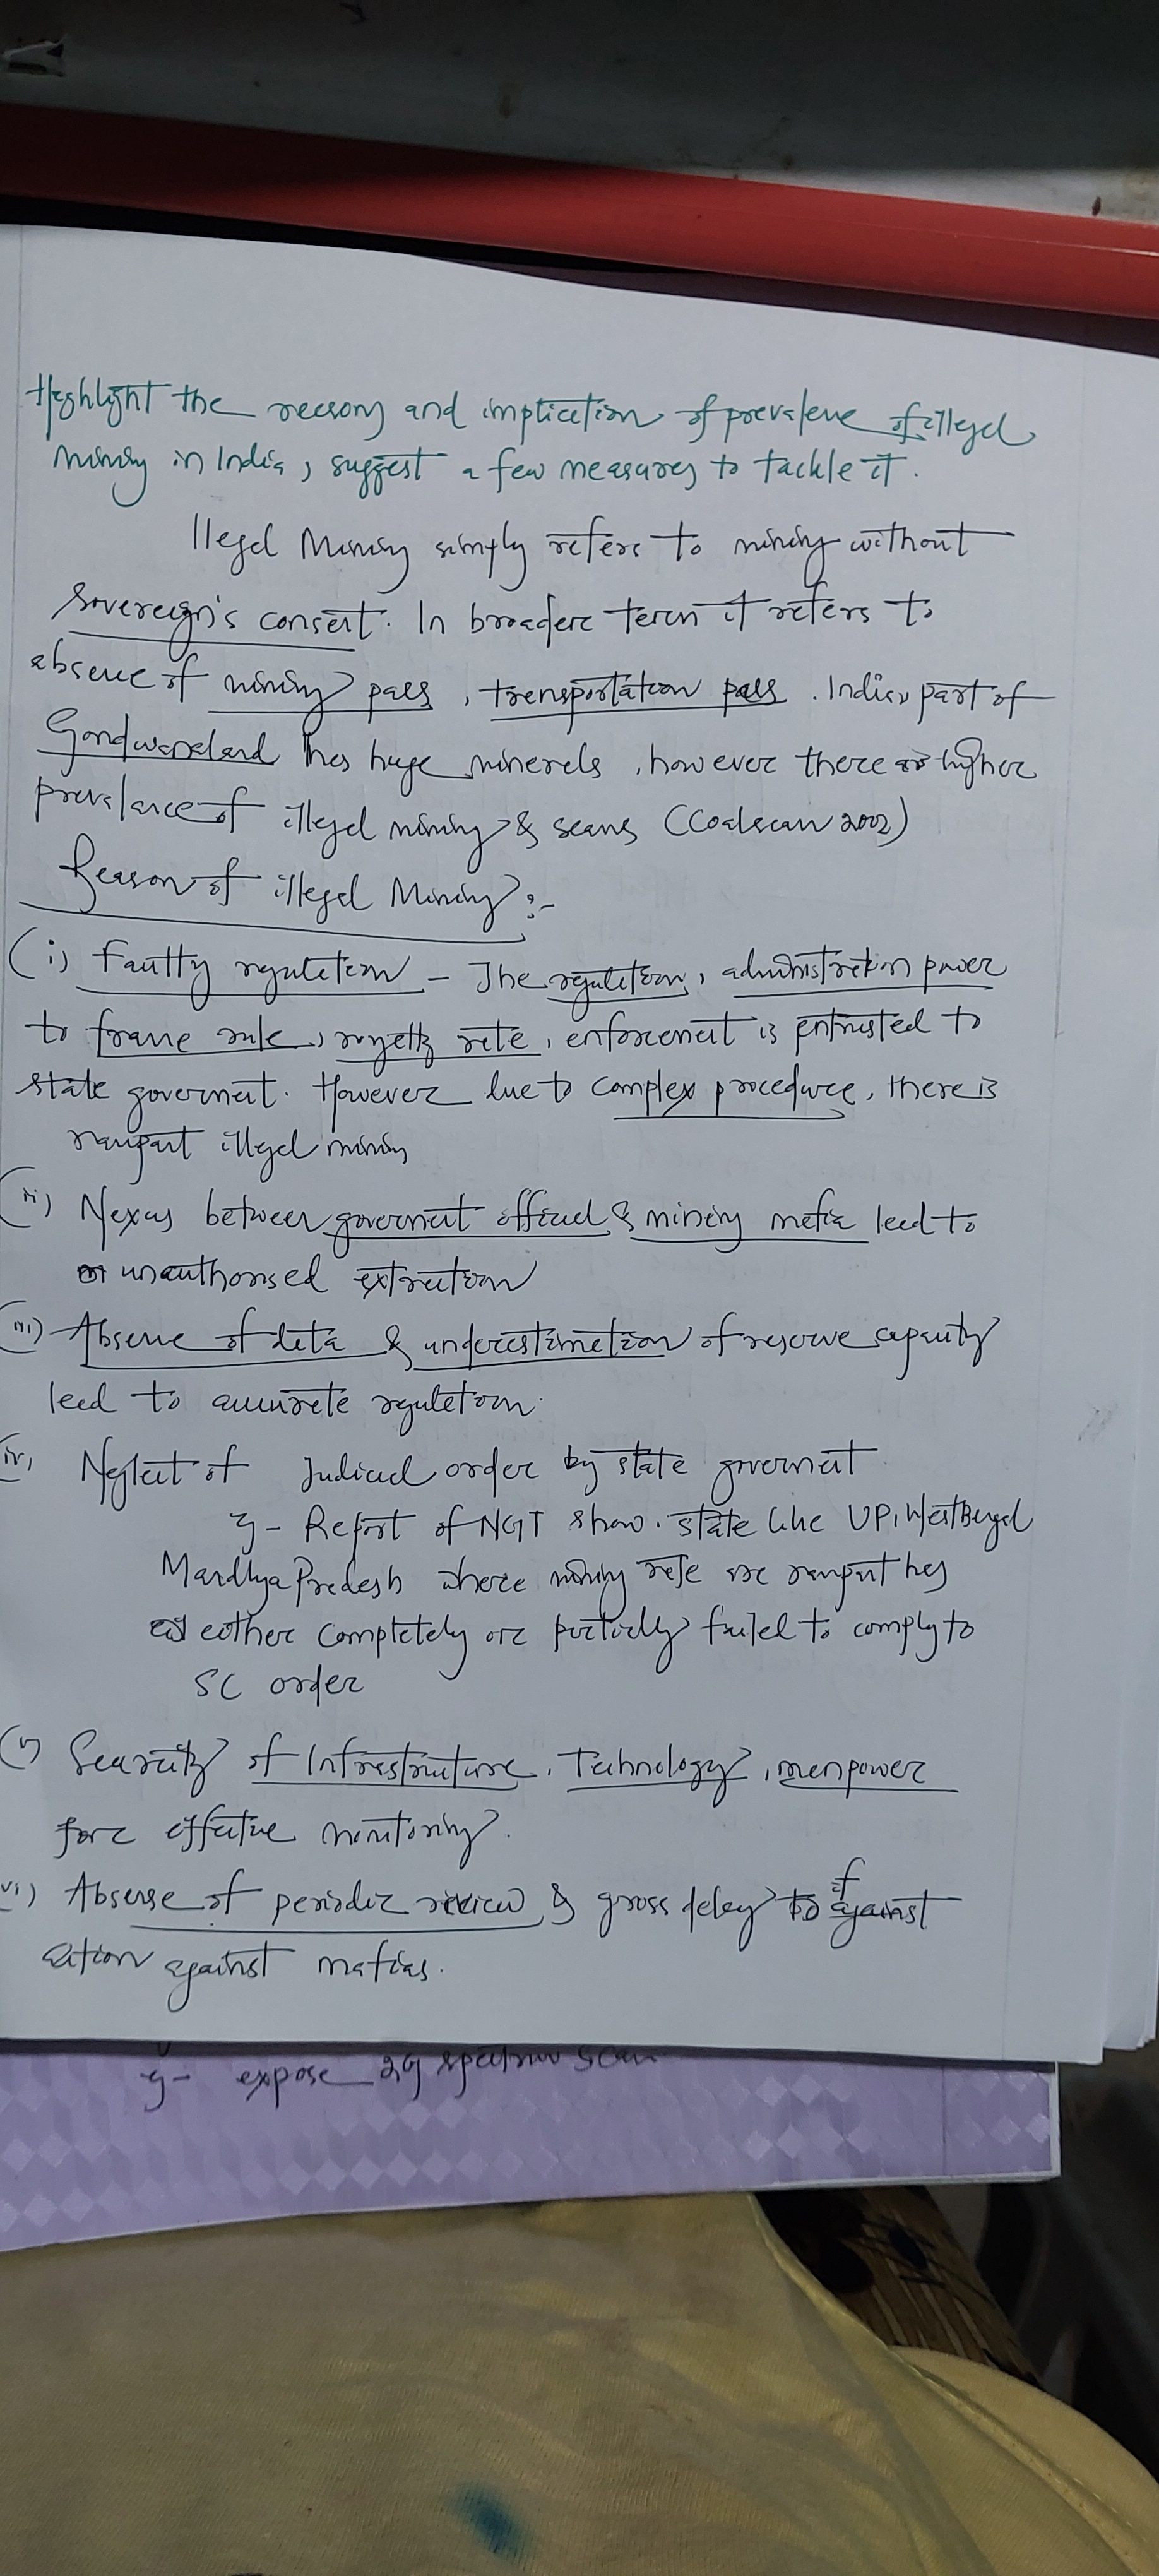 Highlight the reasons and implication of prevalene of illegal
mining in India, suggest a few measures to tackle it.
Ilegal Mining simply refers to mining without
Sovereign's consent. In broader term it refers to
absence of mining pass, transportation pass. India, part of
Gondwanaland has huge minerals, however there is higher
prevalance of illegal mining & scams (Coalscam 2002)
Reason of illegal Mining :-
(i) Faultty regulation - The regulation, administration power
to frame rule, royalty rate, enforcement is entrusted to
state government. However due to complex procedure, there is
rampant illegal mining
(ii) Nexus between government official & mining mafia lead to
unauthorised extraction
(iii) Absense of data & underestimation of reserve capacity
lead to accurate regulation.
(iv) Neglect of Judicial order by state government
eg - Report of NGT show. state like UP, West Bengal
Mardhya Pradesh where mining are rampant has
either completely or partially failed to comply to
SC order
(v) Scarcity of Infrastructure, Technology, manpower
for effective monitoring.
vi) Absense of periodic review & gross delay of against
action against mafias.
eg - expose 2G spectrum scam